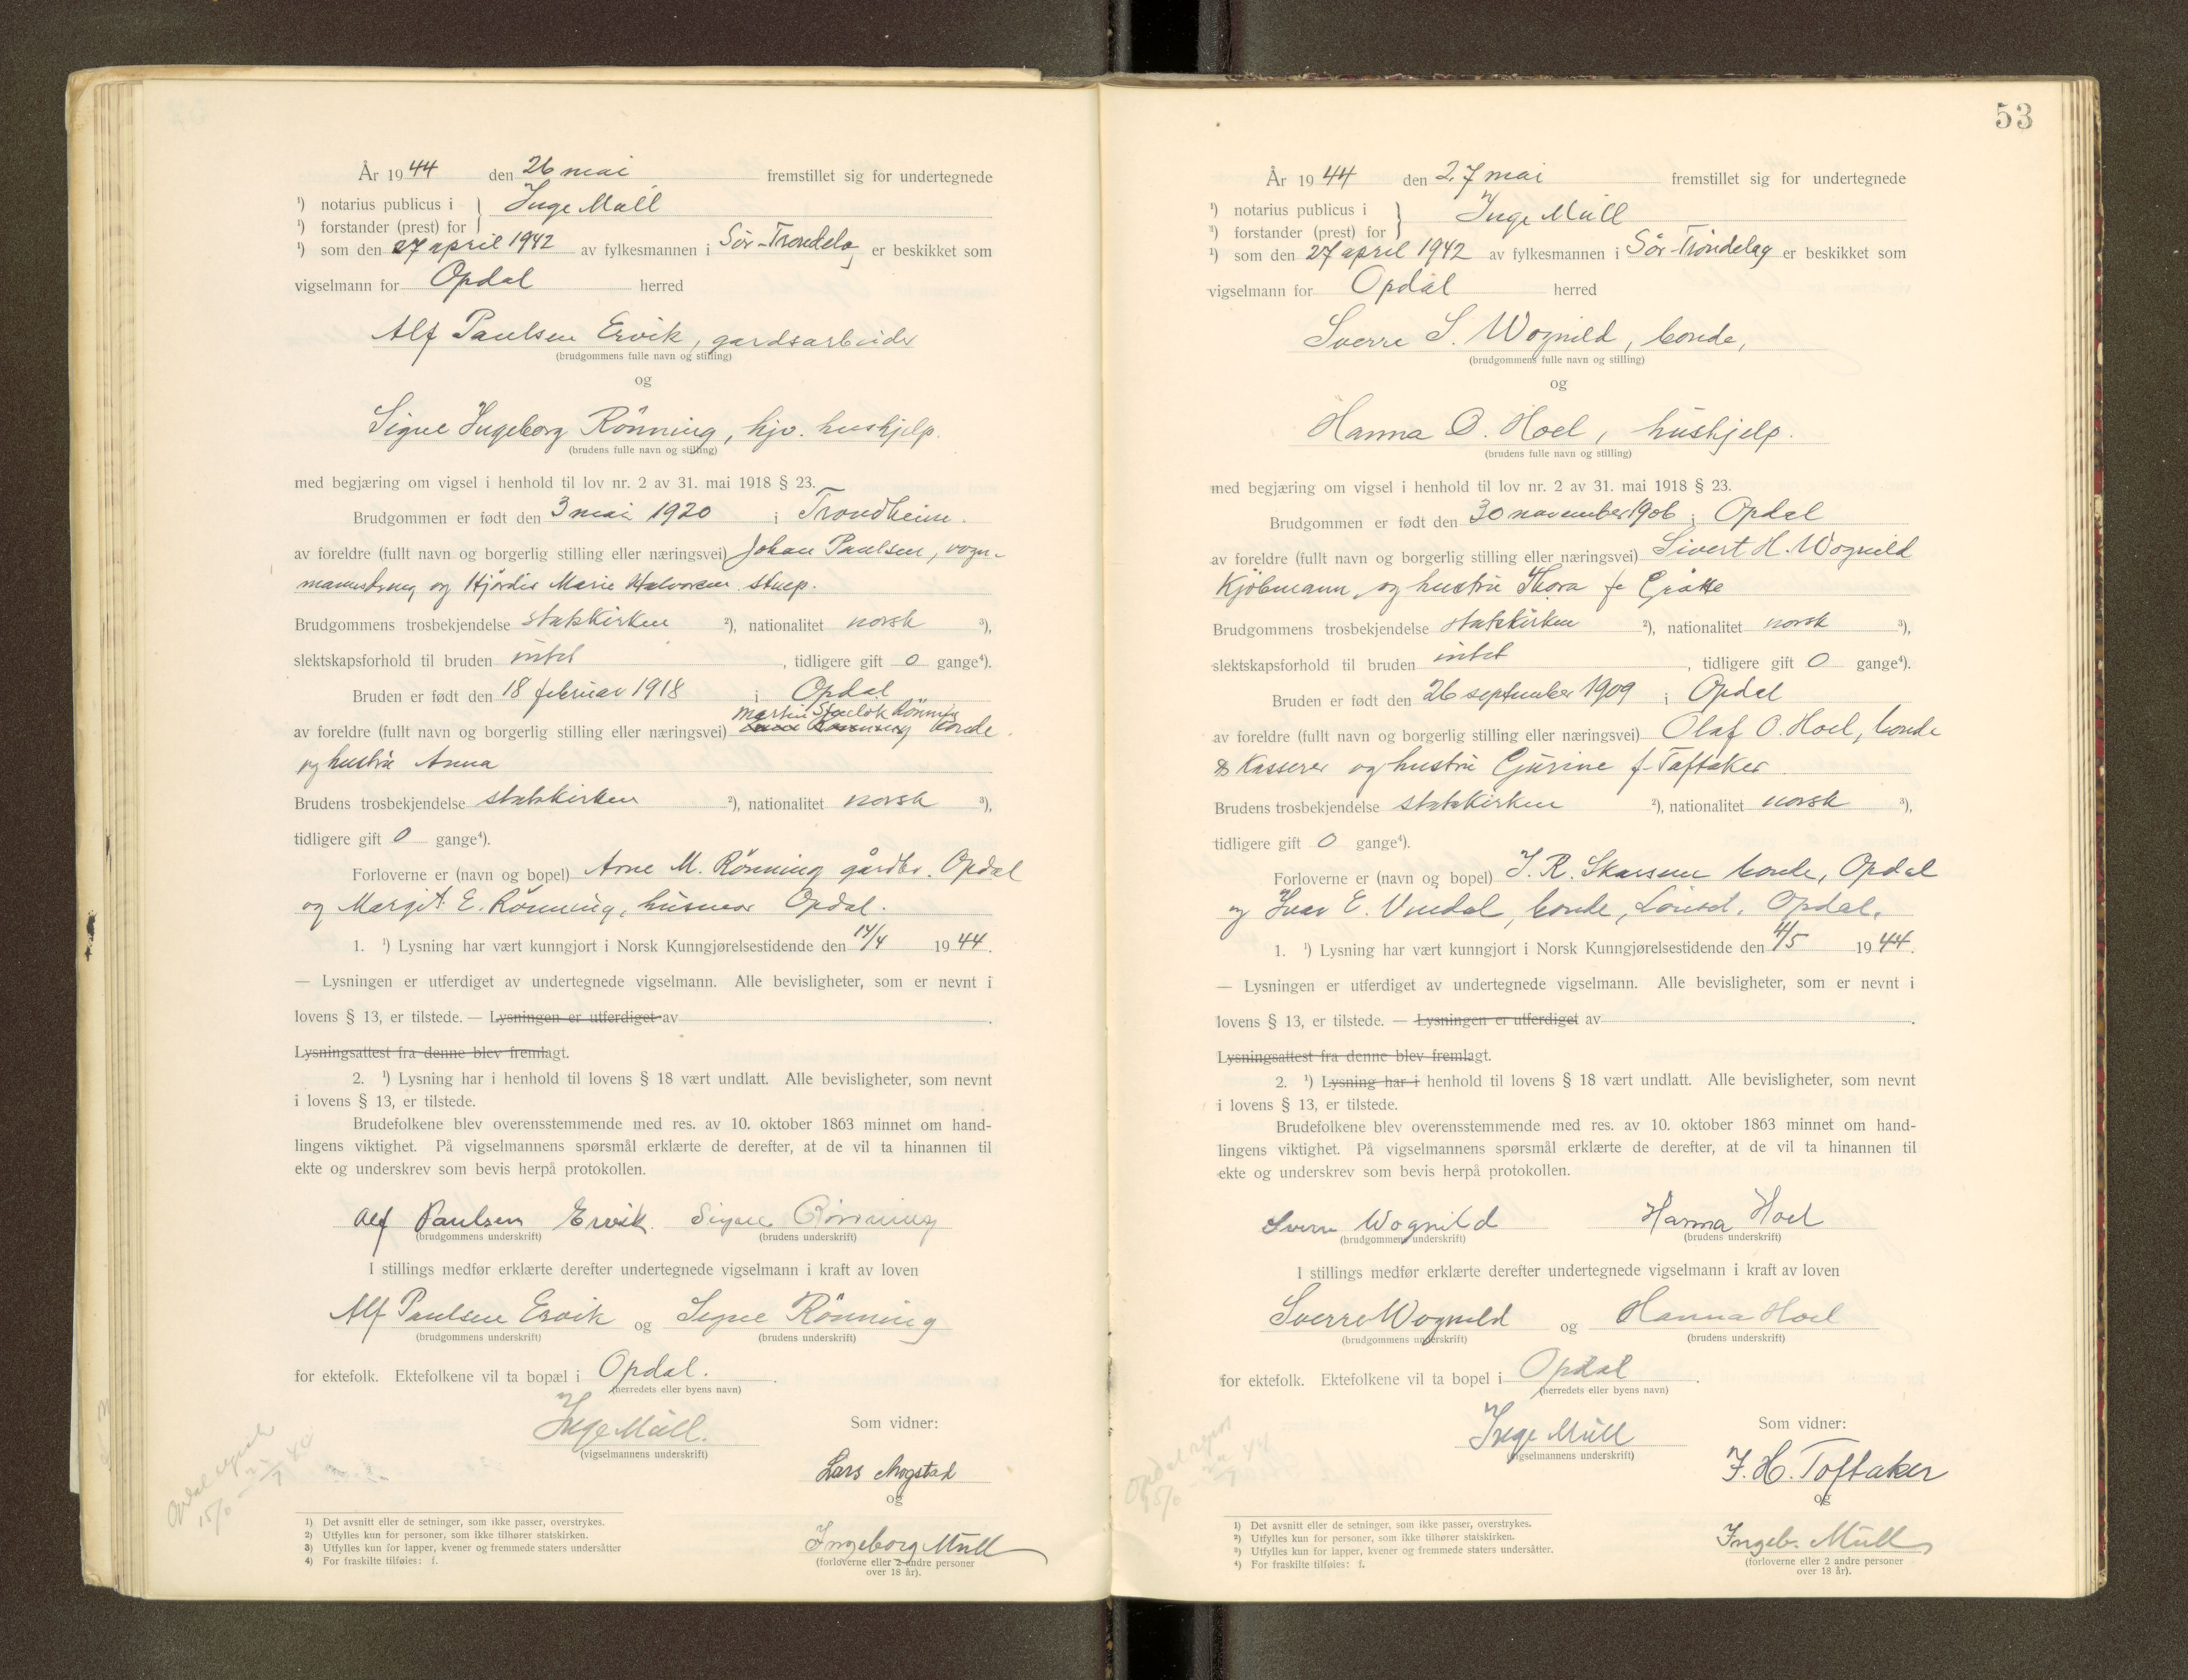 År 1944 den 26 mai fremstillet sig for undertegnede
¹) notarius publicus i } Inge Müll
¹) forstander (prest) for
¹) som den 27 april 1942 av fylkesmannen i Sör-Trøndelag er beskikket som
vigselmann for Opdal herred
Alf Paulsen Ervik, gardsarbeider
(brudgommens fulle navn og stilling)
og
Signe Ingeborg Rönning, hjv. hushjelp.
(brudens fulle navn og stilling)
med begjæring om vigsel i henhold til lov nr. 2 av 31. mai 1918 § 23.
Brudgommen er født den 3 mai 1920 i Trondheim.
av foreldre (fullt navn og borgerlig stilling eller næringsvei) Johan Paulsen, vogn-
og Hjördis Marie Halvorsen
Brudgommens trosbekjendelse statskirken ²), nationalitet norsk ³),
slektskapsforhold til bruden intet, tidligere gift 0 gange⁴).
Bruden er født den 18 februar 1918 i Opdal
Martin Rönning
av foreldre (fullt navn og borgerlig stilling eller næringsvei) bonde
og hustru Anna
Brudens trosbekjendelse statskirken ²), nationalitet norsk ³),
tidligere gift 0 gange⁴).
Forloverne er (navn og bopel) Arne M. Rönning gårdbr. Opdal
og Margit E. Rönning, husmor Opdal.
1. ¹) Lysning har vært kunngjort i Norsk Kunngjørelsestidende den 14/4 1944.
— Lysningen er utferdiget av undertegnede vigselmann. Alle bevisligheter, som er nevnt i
lovens § 13, er tilstede. — Lysningen er utferdiget av
Lysningsattest fra denne blev fremlagt.
2. ¹) Lysning har i henhold til lovens § 18 vært undlatt. Alle bevisligheter, som nevnt
i lovens § 13, er tilstede.
Brudefolkene blev overensstemmende med res. av 10. oktober 1863 minnet om hand-
lingens viktighet. På vigselmannens spørsmål erklærte de derefter, at de vil ta hinannen til
ekte og underskrev som bevis herpå protokollen.
Alf Paulsen Ervik. Signe Rönning
(brudgommens underskrift) (brudens underskrift)
I stillings medfør erklærte derefter undertegnede vigselmann i kraft av loven
Alf Paulsen Ervik og Signe Rönning
(brudgommens underskrift) (brudens underskrift)
for ektefolk. Ektefolkene vil ta bopæl i Opdal.
(herredets eller byens navn)
Inge Müll. Som vidner:
(vigselmannens underskrift)
Lars Mogstad
og
Ingeborg Müll
(forloverne eller 2 andre personer
over 18 år).
1) Det avsnitt eller de setninger, som ikke passer, overstrykes.
2) Utfylles kun for personer, som ikke tilhører statskirken.
3) Utfylles kun for lapper, kvener og fremmede staters undersåtter
4) For fraskilte tilføies: f.
53
År 1944 den 27 mai fremstillet sig for undertegnede
¹) notarius publicus i } Inge Müll
¹) forstander (prest) for
¹) som den 27 april 1942 av fylkesmannen i Sör-Tröndelag er beskikket som
vigselmann for Opdal herred
Sverre S. Wognild, bonde,
(brudgommens fulle navn og stilling)
og
Hanna O. Hoel, hushjelp.
(brudens fulle navn og stilling)
med begjæring om vigsel i henhold til lov nr. 2 av 31. mai 1918 § 23.
Brudgommen er født den 30 november 1906 i Opdal
av foreldre (fullt navn og borgerlig stilling eller næringsvei) Sivert H. Wognild
Kjöbmann, og hustru Thora f.
Brudgommens trosbekjendelse statskirken ²), nationalitet norsk ³),
slektskapsforhold til bruden intet, tidligere gift 0 gange⁴).
Bruden er født den 26 september 1909 i Opdal
av foreldre (fullt navn og borgerlig stilling eller næringsvei) Olaf O. Hoel, bonde
& Kasserer og hustru Gjurine f. Toftaker
Brudens trosbekjendelse statskirken ²), nationalitet norsk ³),
tidligere gift 0 gange⁴).
Forloverne er (navn og bopel) J. R. bonde, Opdal
og Ivar E. Vindal, bonde, Lönset, Opdal.
1. ¹) Lysning har vært kunngjort i Norsk Kunngjørelsestidende den 4/5 1944.
— Lysningen er utferdiget av undertegnede vigselmann. Alle bevisligheter, som er nevnt i
lovens § 13, er tilstede. — Lysningen er utferdiget av
Lysningsattest fra denne blev fremlagt.
2. ¹) Lysning har i henhold til lovens § 18 vært undlatt. Alle bevisligheter, som nevnt
i lovens § 13, er tilstede.
Brudefolkene blev overensstemmende med res. av 10. oktober 1863 minnet om hand-
lingens viktighet. På vigselmannens spørsmål erklærte de derefter, at de vil ta hinannen til
ekte og underskrev som bevis herpå protokollen.
Sverre Wognild Hanna Hoel
(brudgommens underskrift) (brudens underskrift)
I stillings medfør erklærte derefter undertegnede vigselmann i kraft av loven
Sverre Wognild og Hanna Hoel
(brudgommens underskrift) (brudens underskrift)
for ektefolk. Ektefolkene vil ta bopel i Opdal
(herredets eller byens navn)
Inge Müll Som vidner:
(vigselmannens underskrift)
F. H. Toftaker
og
Ingeb. Müll
(forloverne eller 2 andre personer
over 18 år).
1) Det avsnitt eller de setninger, som ikke passer, overstrykes.
2) Utfylles kun for personer, som ikke tilhører statskirken.
3) Utfylles kun for lapper, kvener og fremmede staters undersåtter.
4) For fraskilte tilføies: f.